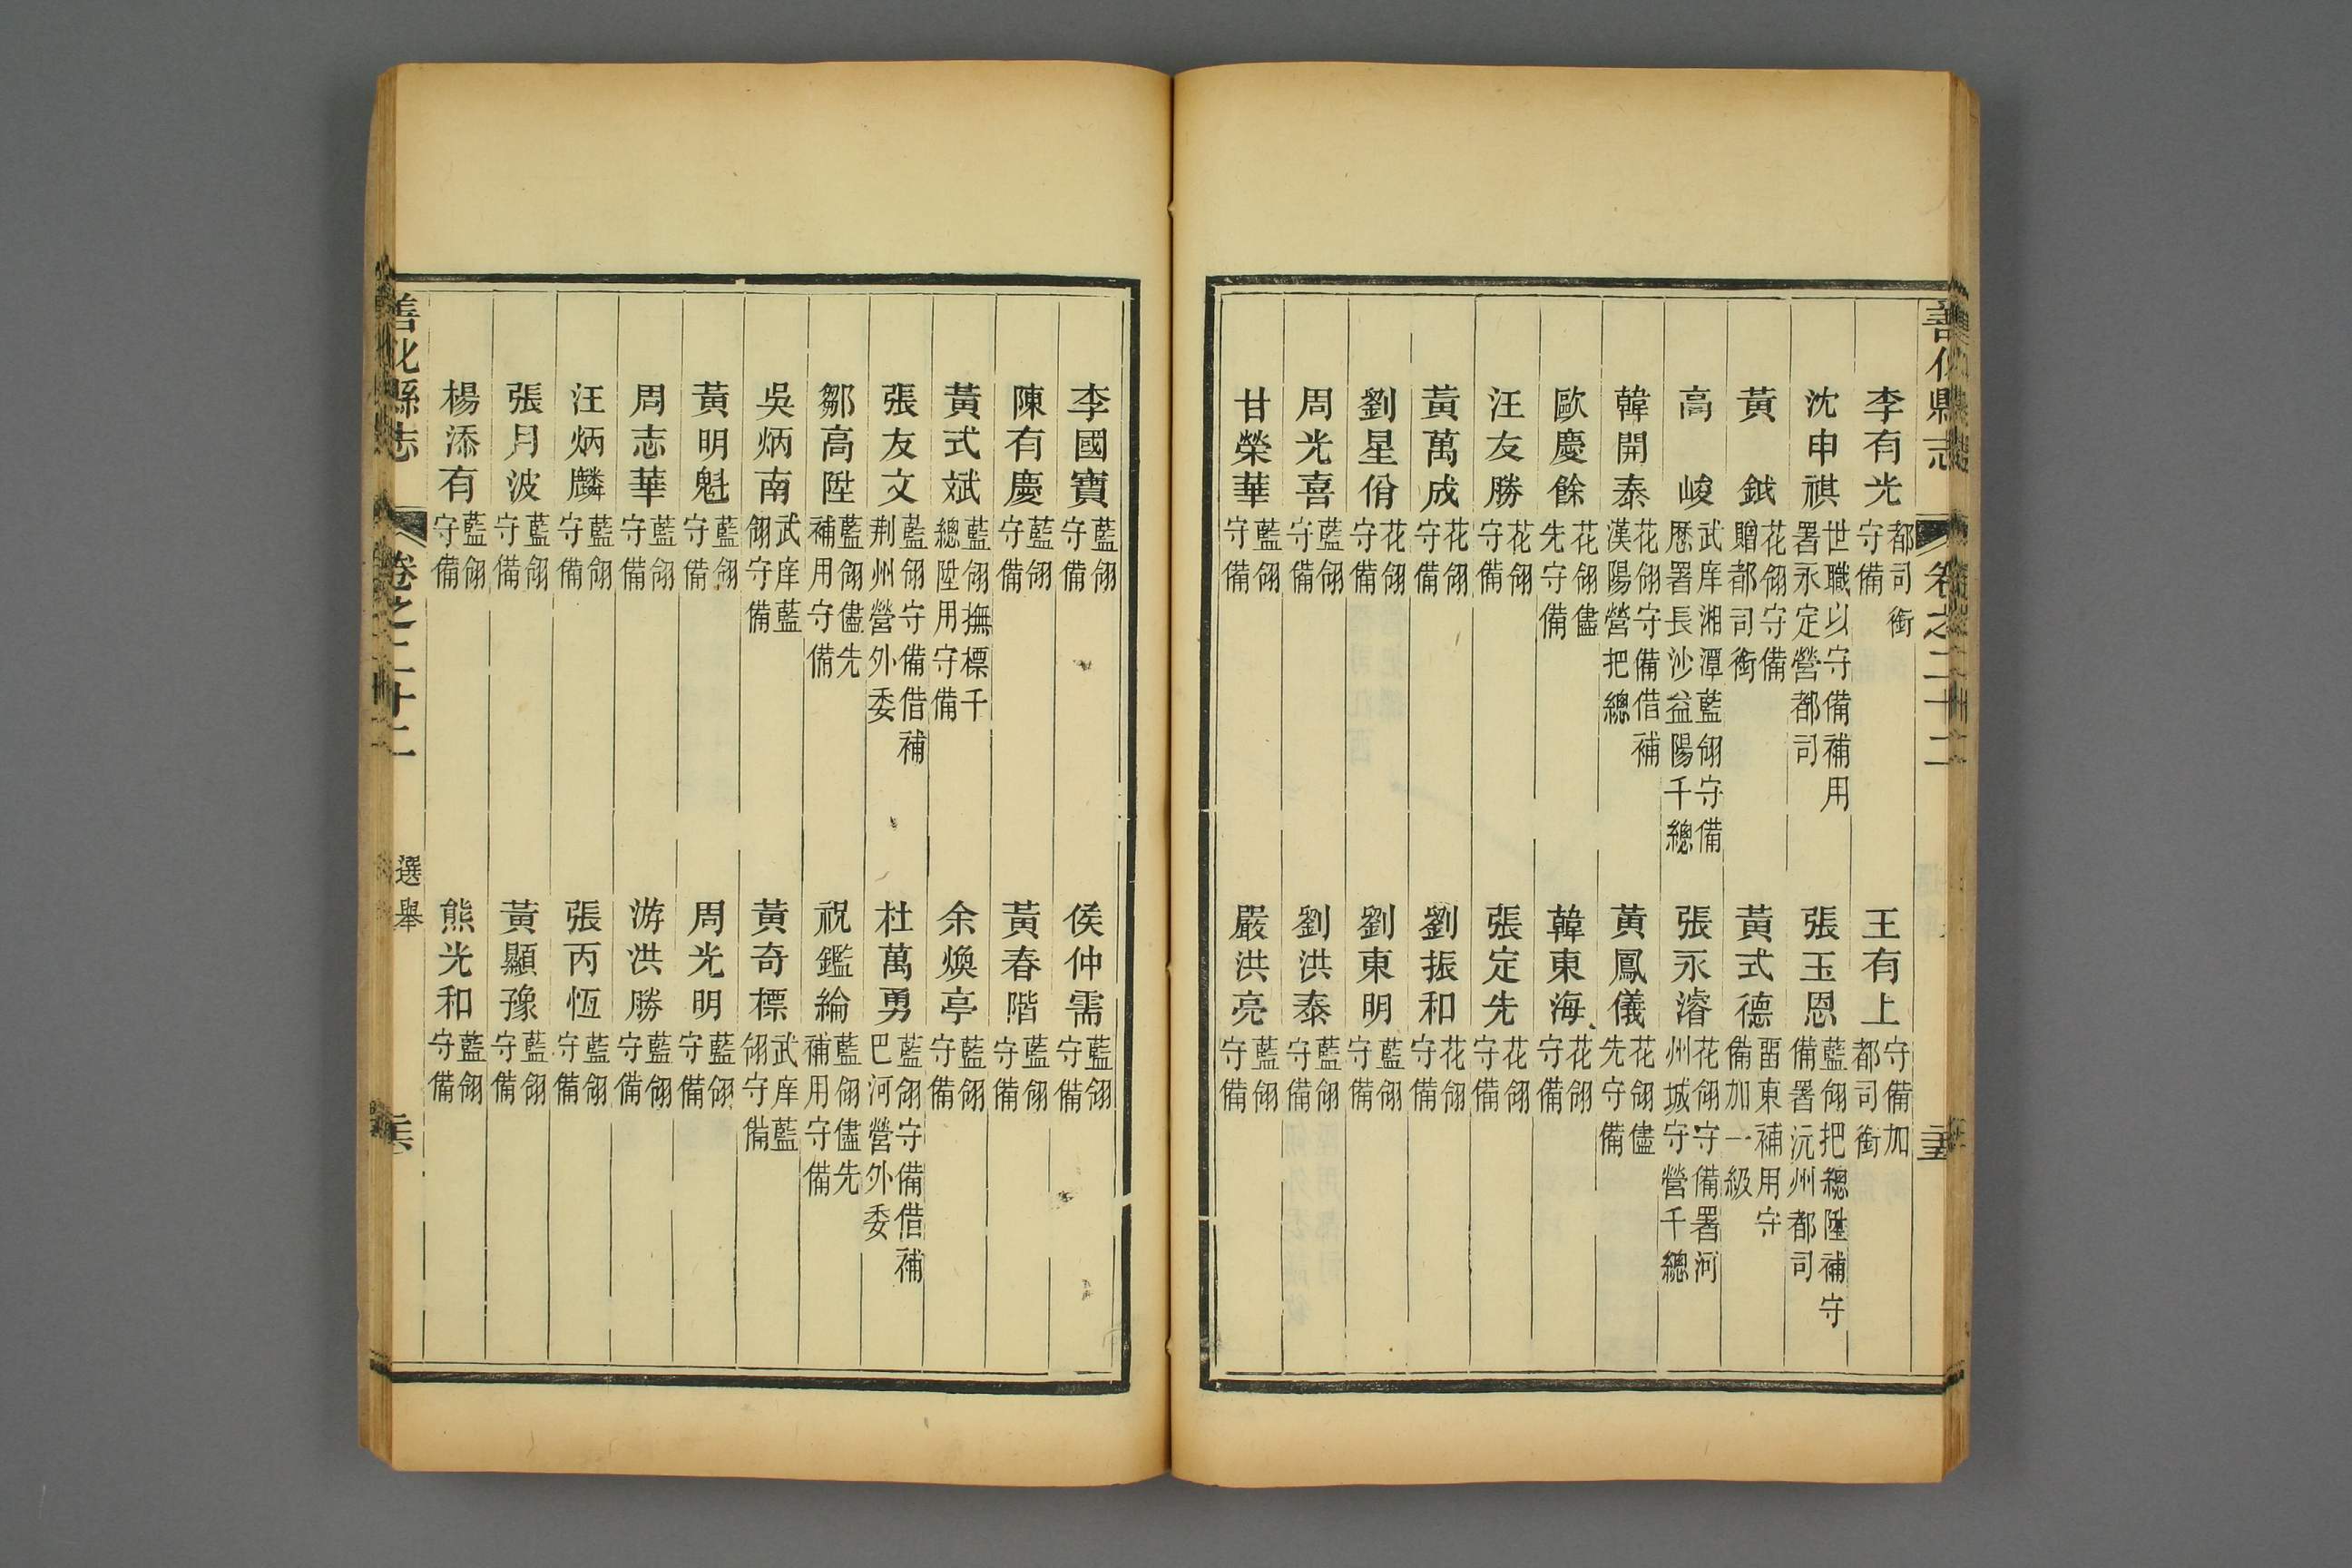 善化縣志 卷之二十二 二十五
李有光 都司銜守備 王有上 守備加都司銜
沈申祺 世職以守備補用署永定營都司 張玉恩 藍翎把總陞補守備署沅州都司
黃鉞 花翎守備贈都司銜 黃式德 留東補用守備加一級
高峻 武庠湘潭藍翎守備歷署長沙益陽千總 張永濬 花翎守備署河州城守營千總
韓開泰 花翎守備借補漢陽營把總 黃鳳儀 花翎儘先守備
歐慶餘 花翎儘先守備 韓東海 花翎守備
汪友勝 花翎守備 張定先 花翎守備
黃萬成 花翎守備 劉振和 花翎守備
劉星佾 花翎守備 劉東明 藍翎守備
周光喜 藍翎守備 劉洪泰 藍翎守備
甘榮華 藍翎守備 嚴洪亮 藍翎守備
李國寶 藍翎守備 侯仲需 藍翎守備
陳有慶 藍翎守備 黃春階 藍翎守備
黃式斌 藍翎撫標千總陞用守備 余煥亭 藍翎守備
張友文 藍翎守備借補荆州營外委 杜萬勇 藍翎守備借補巴河營外委
鄒高陞 藍翎儘先補用守備 祝鑑綸 藍翎儘先補用守備
吳炳南 武庠藍翎守備 黃奇標 武庠藍翎守備
黃明魁 藍翎守備 周光明 藍翎守備
周志華 藍翎守備 游洪勝 藍翎守備
汪炳麟 藍翎守備 張丙恆 藍翎守備
張月波 藍翎守備 黃顯豫 藍翎守備
楊添有 藍翎守備 熊光和 藍翎守備
善化縣志 卷之二十二 選舉 二十六